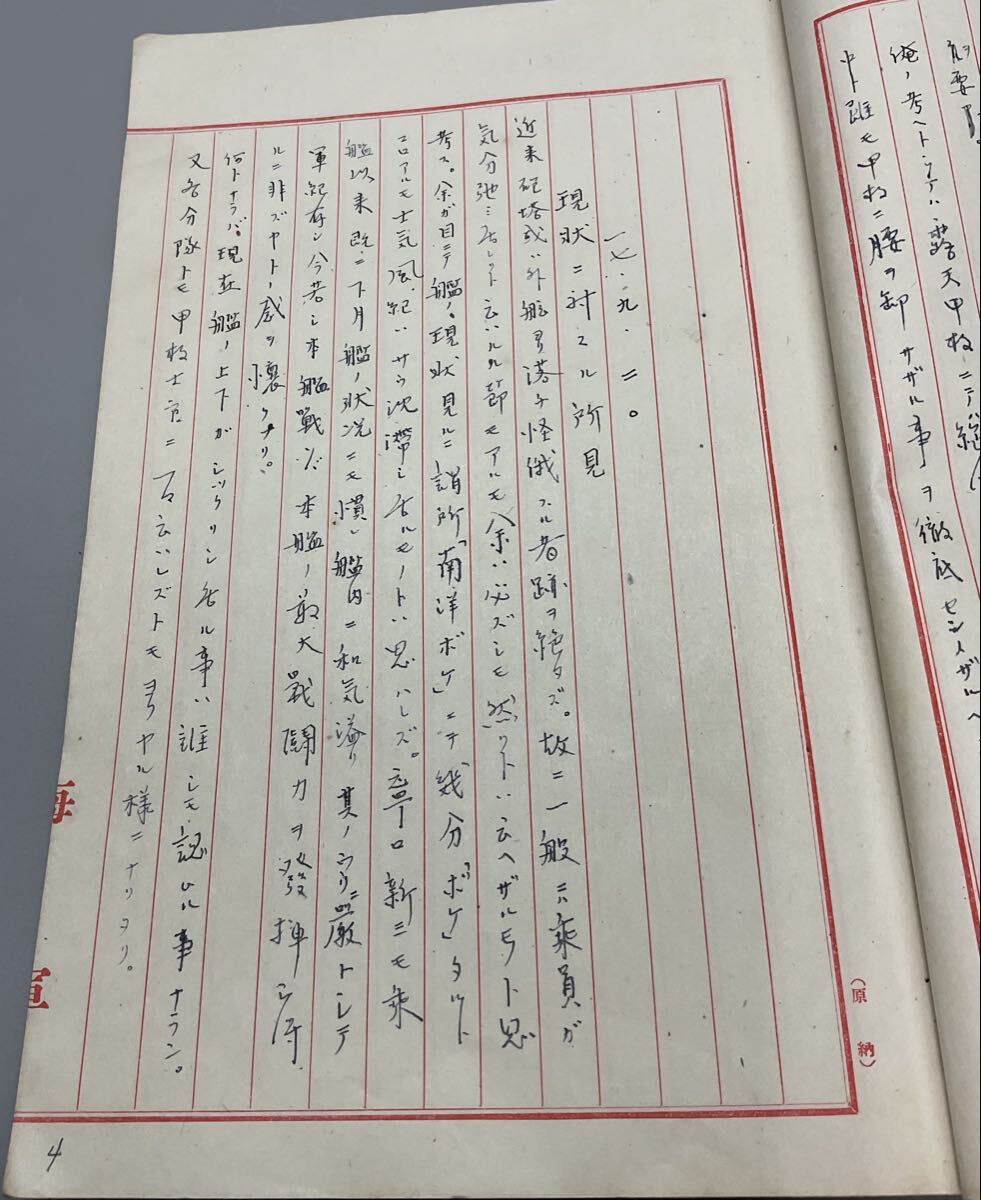 前要
俺ノ考ヘトシテハ露天甲板ニテハ絶
中ト雖モ甲板ニ腰ヲ卸サザル事ヲ徹底セシメザルヘ
一七・九・二〇
現状ニ対スル所見
近来砲塔或ハ外舷ヨリ落チ怪俄スル者跡ヲ絶タズ。故ニ一般ニハ乗員ガ
気分弛ミ居レリト云ハルル節モアルモ余ハ必ズシモ然リトハ云ヘザルモノト思
考ス。余ガ目ニテ艦ノ現状見ルニ謂所「南洋ボケ」ニテ幾分「ボケ」タルト
コロアルモ士気風紀ハサウ沈滞シ居ルモノトハ思ハレズ。寧ロ新ニモ乗
艦以来既ニ 月艦ノ状況ニモ慣レ艦内ニ和気溢リ其ノウリニ厳トシテ
軍紀存シ今若シ本艦戦ハバ本艦ノ最大戦闘力ヲ發揮シ得
ルニ非ズヤトノ感ヲ懐クナリ。
何トナラバ、現在艦ノ上下ガシックリシ居ル事ハ誰シモ認ムル事ナラン。
又各分隊トモ甲板士官ニ 云ハレズトモヨクヤル様ニナリヲリ。
海
亘
(原 納)
4